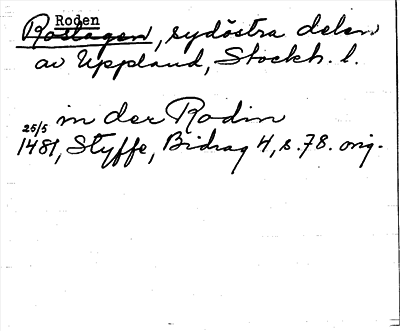 Roden
Roslagen, sydöstra delen
av Uppland, Stockh. l.
in der Rodin
25/5
1481, Styffe, Bidrag 4, s. 78. orig.